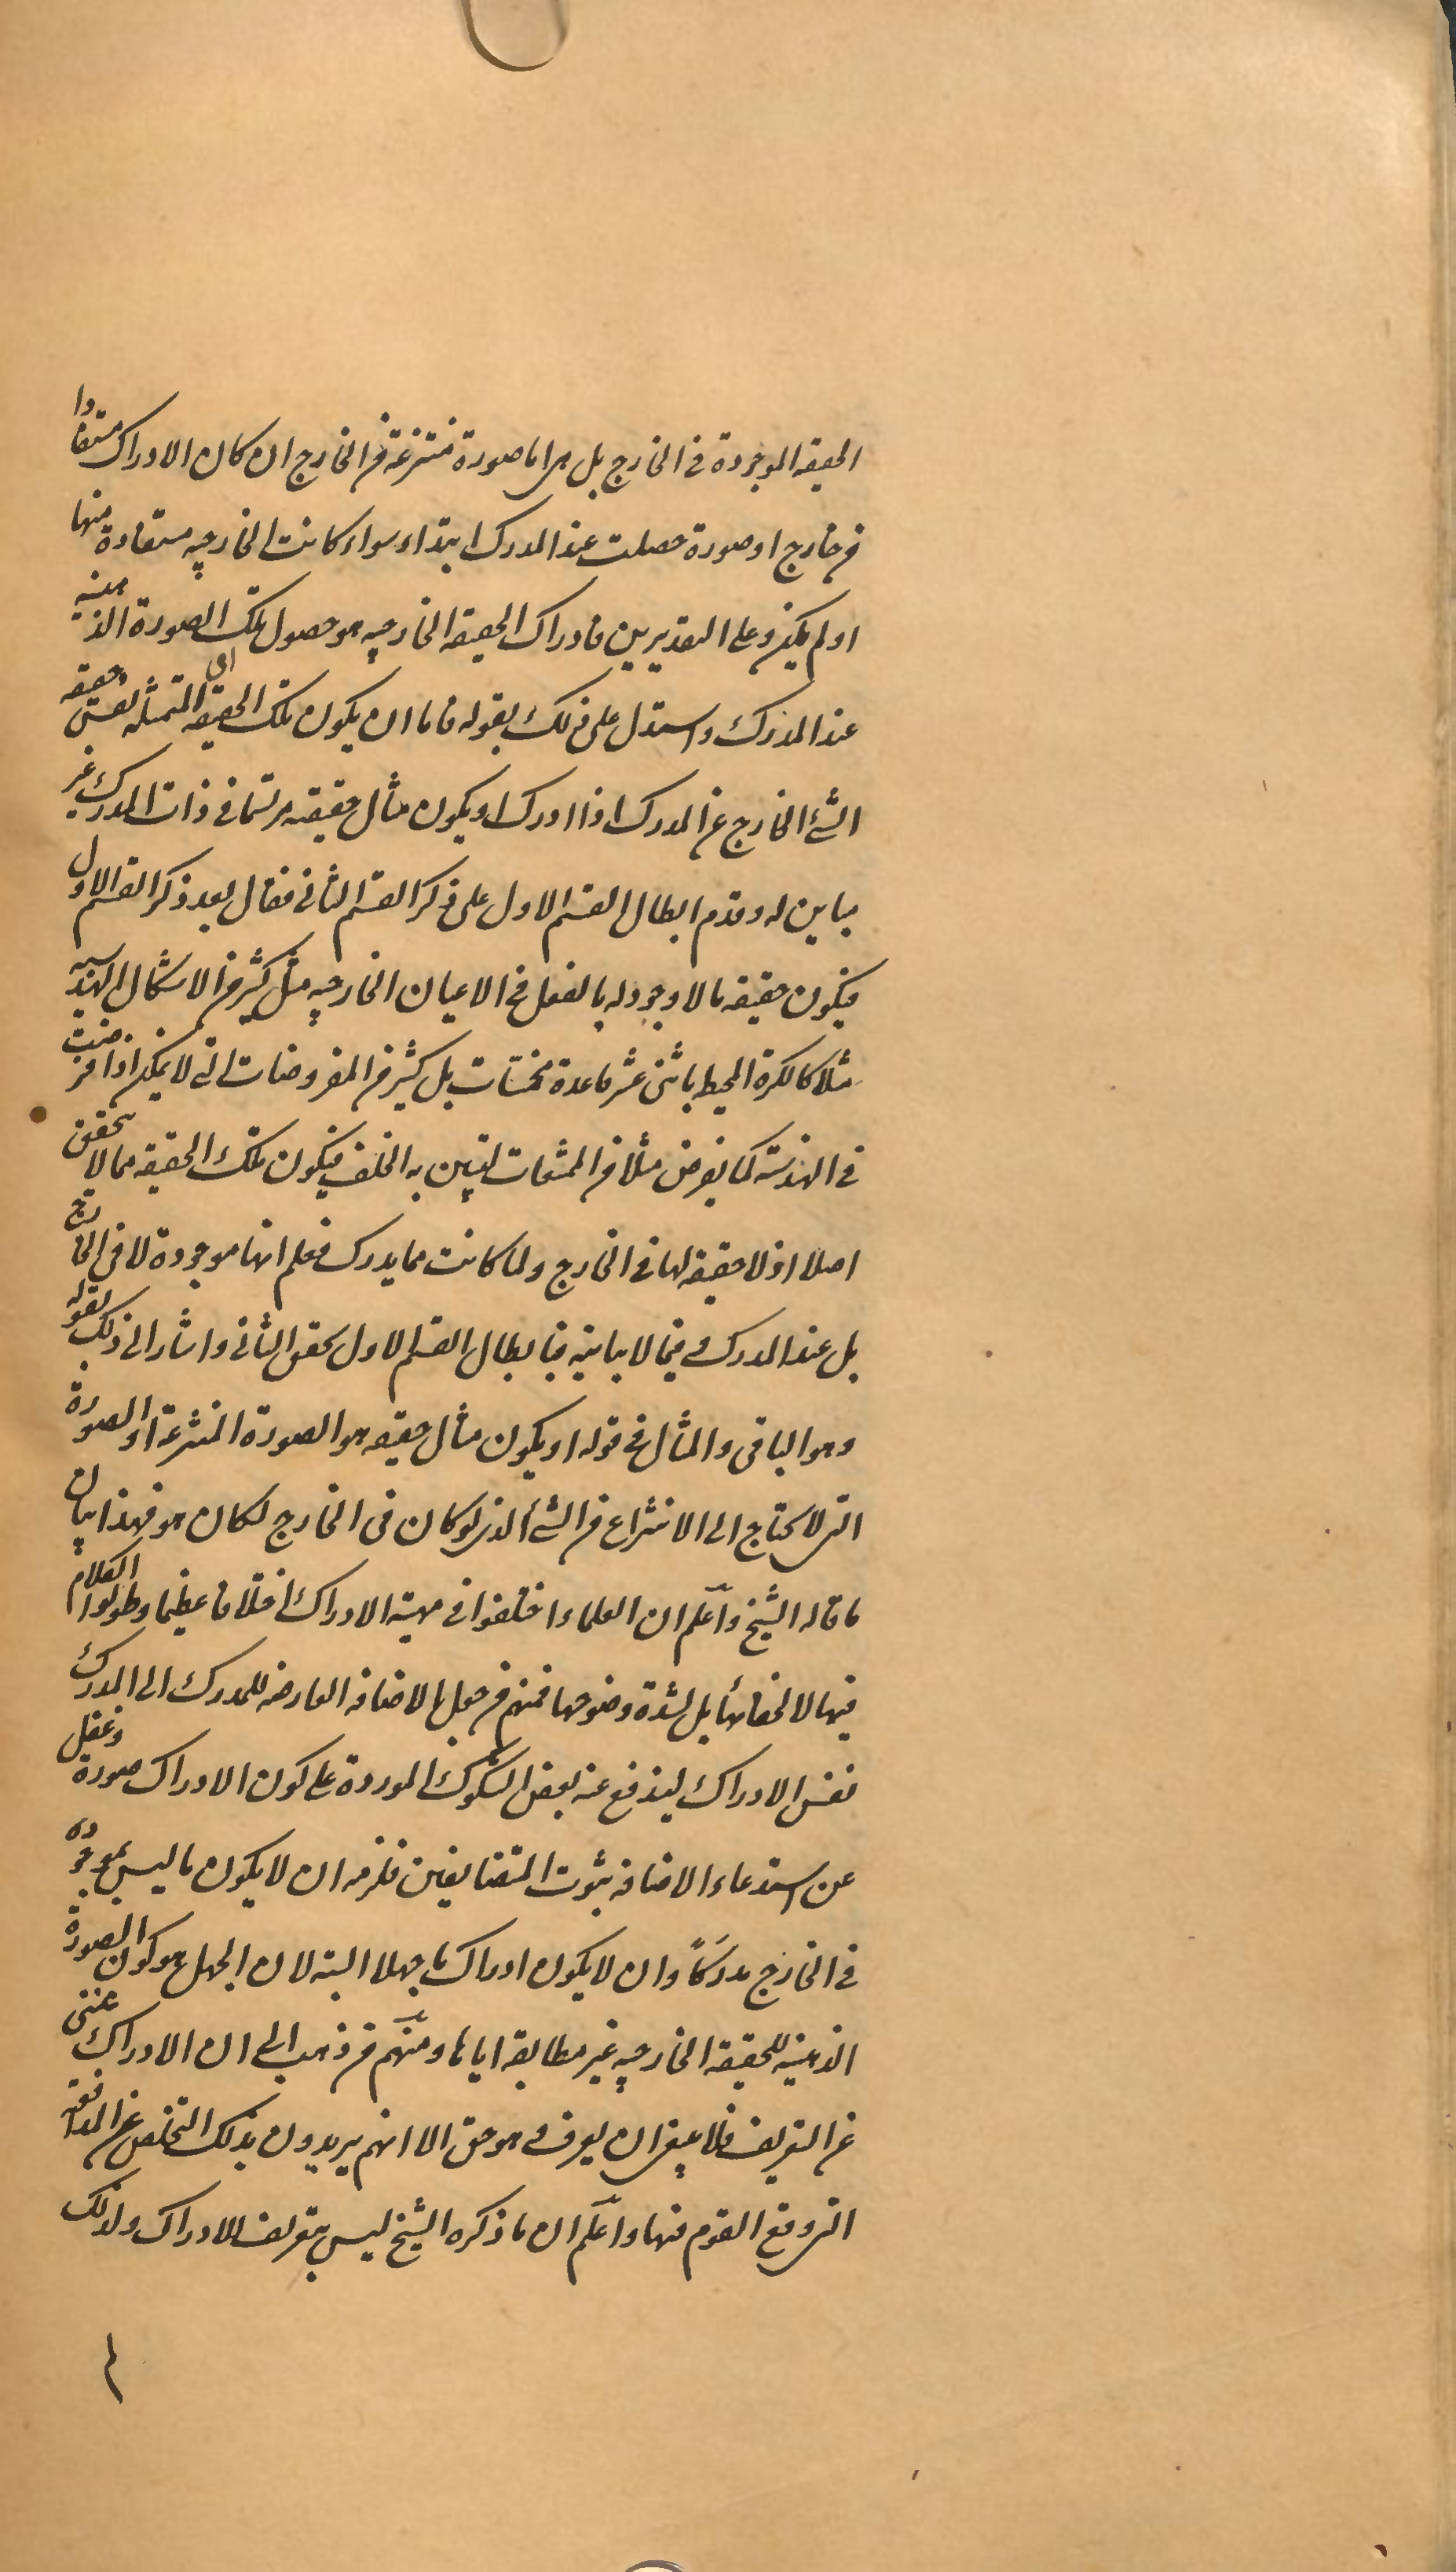 الحقيقه الموجودة فى الخارج بل هى اما صورة منتزعة من الخارج ان كان الادراك مستفادا
من خارج او صورة حصلت عند المدرك ابتداء سواء كانت الخارجيه مستفادة منها
او لم يكن وعلى التقديرين فادراك الحقيقه الخارجيه هو حصول تلك الصورة الذهنيه
عند المدرك واستدل على ذلك بقوله فاما ان يكون تلك الحقيقه اى المتمثله نفس حقيقه
الشئ الخارج عن المدرك اذا ادرك او يكون مثال حقيقته مرتسما فى ذات المدرك غير
مباين له وقدم ابطال القسم الاول على ذكر القسم الثانى فقال بعد ذكر القسم الاول
فيكون حقيقه ما لا وجود له بالفعل فى الاعيان الخارجيه مثل كثير من الاشكال الهندسيه
مثلا كالكرة المحيط باثنى عشر قاعدة مخمسات بل كثير من المفروضات التى لا يمكن اذا فرضت
فى الهندسة كما يفرض مثلا من الممتنعات ليتبين به الخلف فيكون تلك الحقيقه مما لا يتحقق
اصلا اذ لا حقيقه لها فى الخارج ولما كانت مما يدرك فعلم انها موجودة لا فى الخارج
بل عند المدرك وفيما لا يباينه فبابطال القسم الاول تحقق الثانى واشار الى ذلك بقوله
وهو الباقى والمثال فى قوله او يكون مثال حقيقه هو الصورة المنتزعة او الصورة
التى لا يحتاج الى الانتزاع من الشئ الذى لو كان فى الخارج لكان هو فهذا بيان
ما قاله الشيخ واعلم ان العلماء اختلفوا فى مهية الادراك اختلافا عظيما وطولوا الكلام
فيها لا لخفائها بل لشدة وضوحها فمنهم من جعل الاضافه العارضه للمدرك الى المدرك
نفس الادراك ليندفع عنه بعض الشكوك الموردة على كون الادراك صورة وغفل
عن استدعاء الاضافه ثبوت المتضايفين فلزمه ان لا يكون ما ليس بموجود
فى الخارج مدرَكاً وان لا يكون ادراك ما جهلا البته لان الجهل هو كون الصورة
الذهنيه للحقيقه الخارجيه غير مطابقه اياها ومنهم من ذهب الى ان الادراك غنى
عن التعريف فلا ينبغى ان يعرف وهو حق الا انهم يريدون بذلك التخلص عن المضايقه
التى وقع القوم فيها واعلم ان ما ذكره الشيخ ليس بتعريف للادراك ولذلك